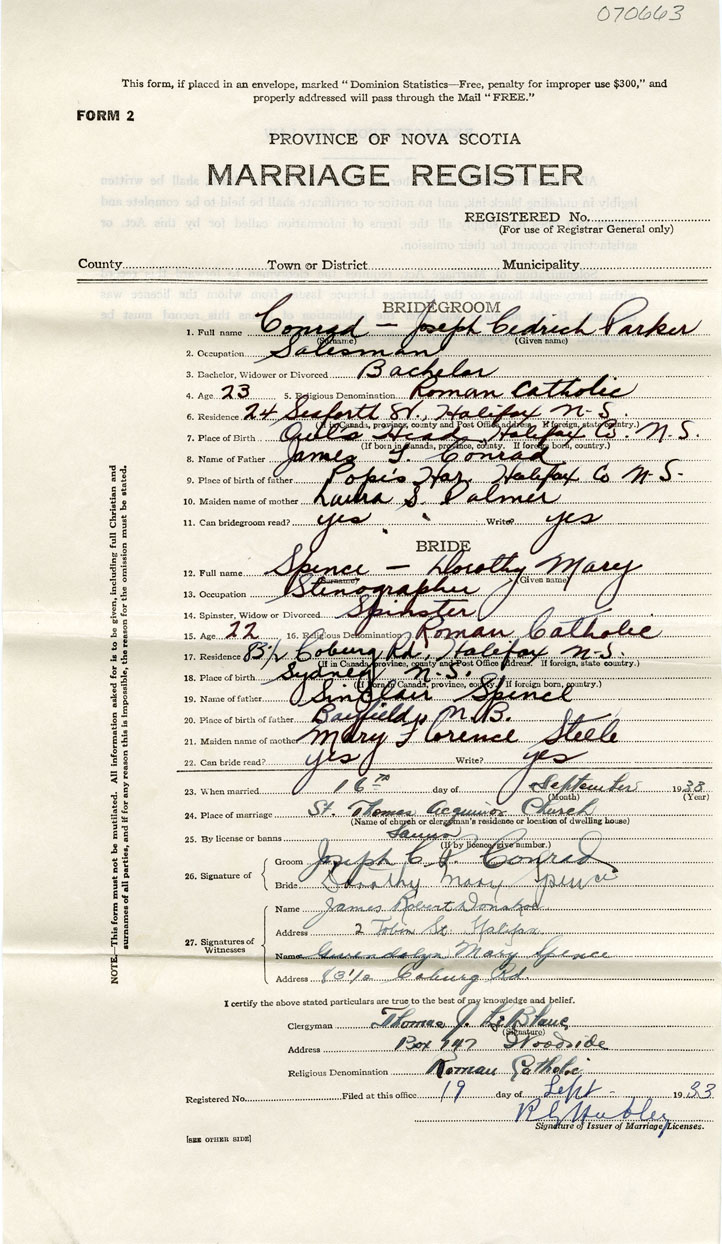 070663
This form, if placed in an envelope, marked "Dominion Statistics—Free, penalty for improper use $300," and
properly addressed will pass through the Mail "FREE."
FORM 2
PROVINCE OF NOVA SCOTIA
MARRIAGE REGISTER
REGISTERED No.
(For use of Registrar General only)
County Town or District Municipality
BRIDEGROOM
1. Full name Conrad — Joseph Cedrich Parker
(Surname) (Given name)
2. Occupation Salesman
3. Bachelor, Widower or Divorced Bachelor
4. Age 23 5. Religious Denomination Roman Catholic
6. Residence 24 Seaforth St., Halifax N.S.
(If in Canada, province, county and Post Office address. If foreign, state country.)
7. Place of Birth Gull's Head, Halifax Co. N.S.
(If born in Canada, province, county. If foreign born, country.)
8. Name of Father James Conrad
9. Place of birth of father Pope's Har. Halifax Co N.S.
10. Maiden name of mother Laura S. Palmer
11. Can bridegroom read? yes Write? yes
BRIDE
12. Full name Spence — Dorothy Mary
(Surname) (Given name)
13. Occupation Stenographer
14. Spinster, Widow or Divorced Spinster
15. Age 22 16. Religious Denomination Roman Catholic
17. Residence 83½ Coburg Rd, Halifax N.S.
(If in Canada, province, county and Post Office address. If foreign, state country.)
18. Place of birth Sydney N.S.
(If born in Canada, province, county. If foreign born, country.)
19. Name of father Sinclair Spence
20. Place of birth of father Bayfield, N.B.
21. Maiden name of mother Mary Florence Steele
22. Can bride read? yes Write? yes
23. When married 16TH day of September 1933
(Month) (Year)
24. Place of marriage St. Thomas Acquinos Church
(Name of church or clergyman's residence or location of dwelling house)
25. By license or banns Banns
(If by licence give number.)
26. Signature of
Groom Joseph C. P. Conrad
Bride Dorothy Mary Spence
27. Signatures of Witnesses
Name James Robert Donahoe
Address 2 Tobin St. Halifax
Name Gwendolyn Mary Spence
Address 83½ Coburg Rd.
I certify the above stated particulars are true to the best of my knowledge and belief.
Clergyman Thomas J. LeBlanc
(Signature)
Address Box 147 Woodside
Religious Denomination Roman Catholic
Registered No. Filed at this office 19 day of Sept. 1933
Signature of Issuer of Marriage Licenses.
[SEE OTHER SIDE]
NOTE.—This form must not be mutilated. All information asked for is to be given, including full Christian and
surnames of all parties, and if for any reason this is impossible, the reason for the omission must be stated.